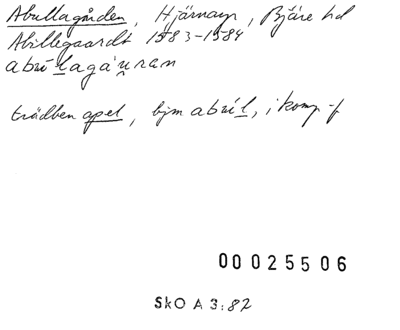 Abullagården, Hjärnarp, Bjäre hd
Abillegaardt 1583-1584
abúlagáʀnan
trädben apel, bjm abúl, i komp -f
00025506
SkO A 3:82